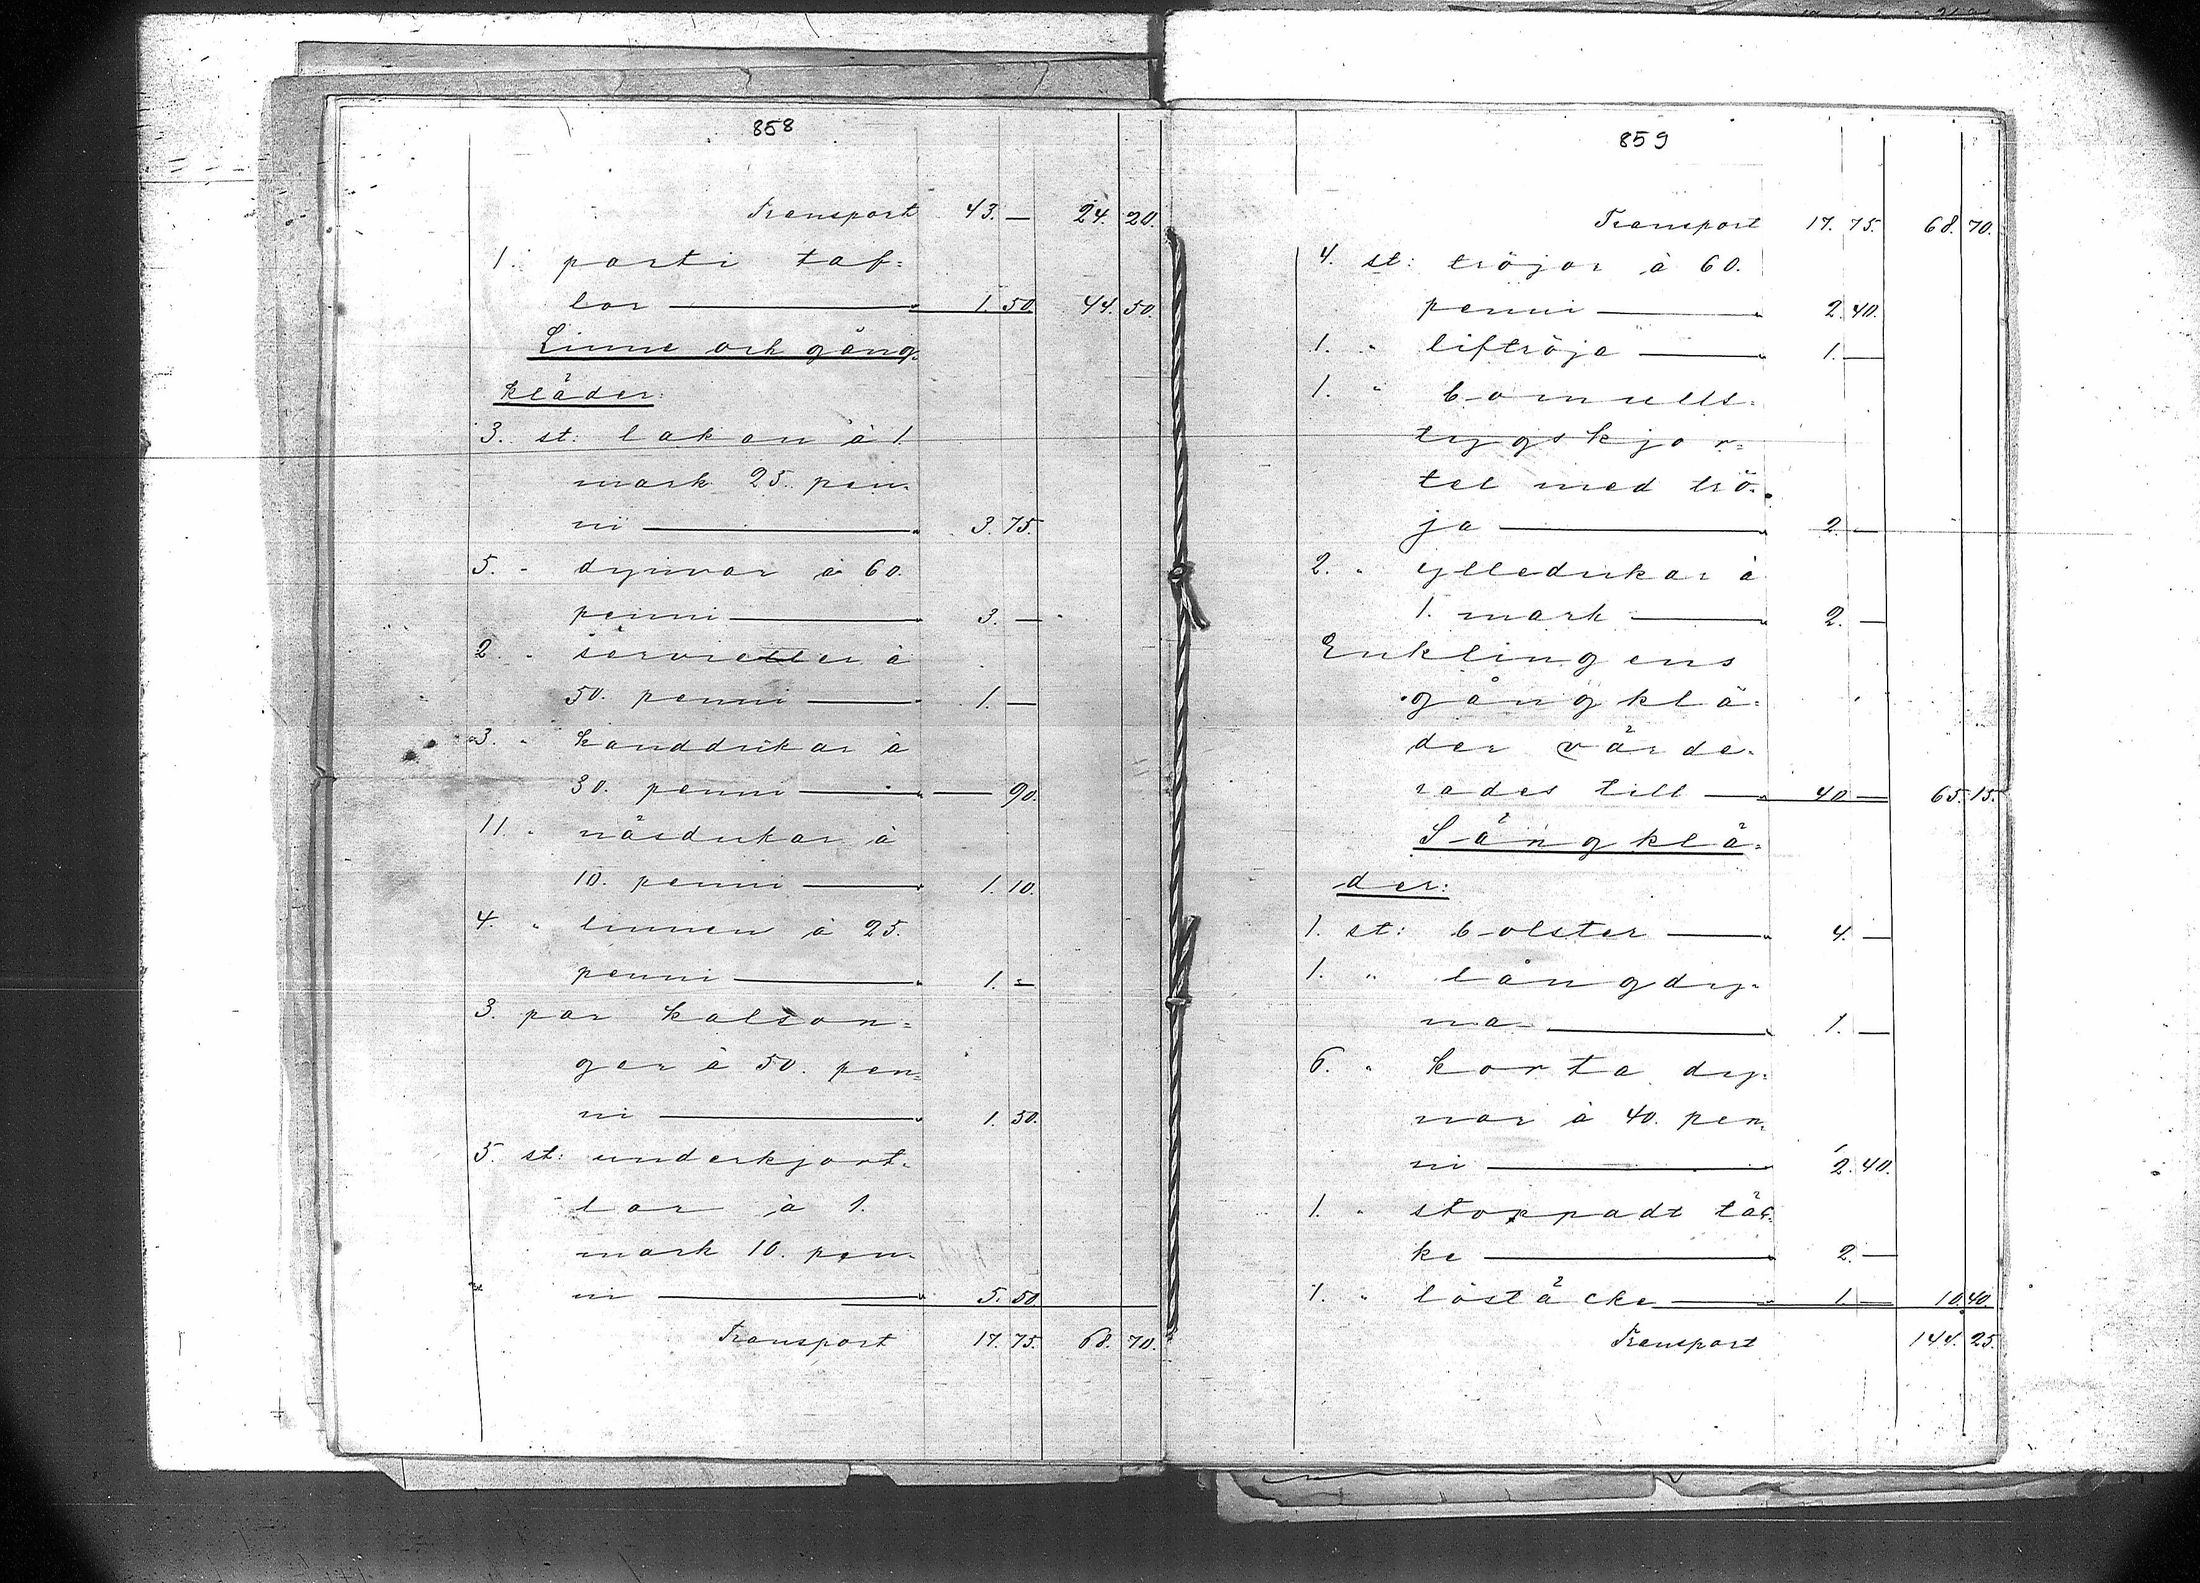 858
Transport 43. — 24. 20.
1. parti taf=
lor — 1. 50. 44. 50.
Linne och gång-
kläder:
3. st: lakan à 1.
mark 25. pen-
ni — 3. 75.
5. " dynvar à 60.
penni — 3. —
2. " servietter à
50. penni — 1. —
3. " handdukar à
30. penni — — 90.
11. " näsdukar à
10. penni — 1. 10.
4. " linnen à 25.
penni — 1. —
3. par kalson=
ger à 50. pen=
ni — 1. 50.
5. st: underkjort-
lar à 1.
mark 10. pen-
ni — 5. 50.
Transport 17. 75. 68. 70.
859
Transport 17. 75. 68. 70.
4. st: tröjor à 60.
penni — 2. 40.
1. " liftröja — 1. —
1. " bomulls-
tygskjor=
tel med trö-
ja — 2. —
2. " ylledukar à
1. mark — 2. —
Enklingens
gångklä-
der värde-
rades till — 40 — 65. 15.
Sängklä-
der:
1. st: bolster — 4. —
1. " långdy-
na — 1. —
6. " korta dy-
nor à 40. pen-
ni — 2. 40.
1. " stoppadt täc-
ke — 2. —
1. " löstäcke — 1. — 10. 40.
Transport 144. 25.